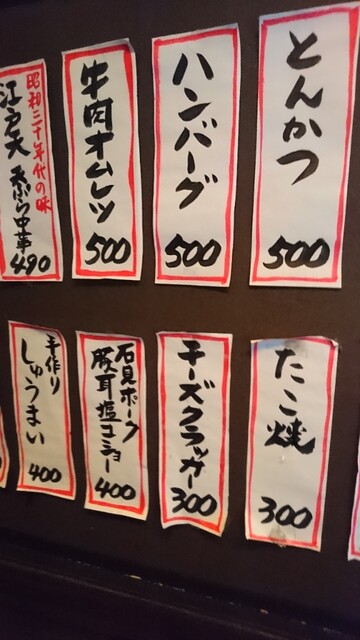 とんかつ
500
ハンバーグ
500
牛肉オムレツ
500
昭和三十年代の味
江戸天 天ぷら中華
490
たこ焼
300
チーズクラッカー
300
石見ポーク
豚耳塩コショー
400
手作り
しゅうまい
400